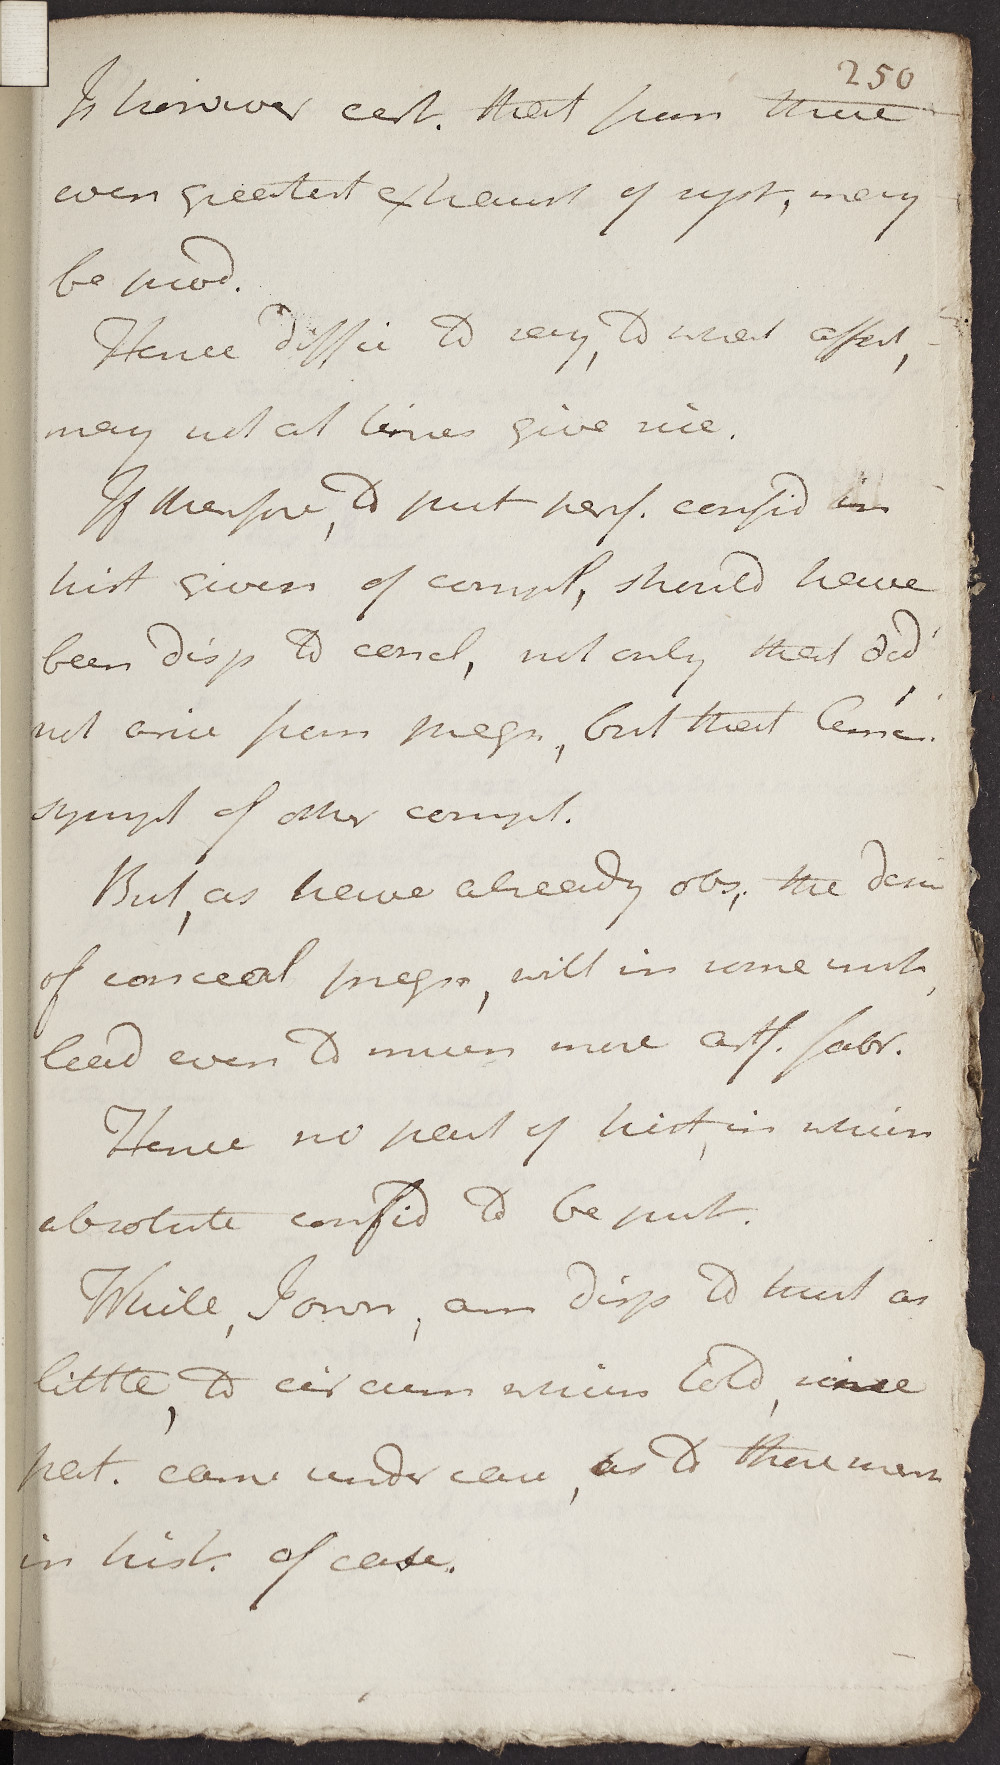 250
Is however cert. that from these
even greatest exhaust of syst, may
be prod.
Hence diffic to say, to what affect,
may not at times give rise.
If therefore, to put perf. confid in
hist given of compl, should have
been disp to concl, not only that did
not arise from pregn, but that
sympt of other compl.
But, as have already obs, the desire
of conceal pregn, will in some inst,
lead even to much more artf. fabr.
Hence no part of hist, in which
absolute confid to be put.
While, I own, am disp to trust as
little, to circum which told, since
pat. came under care, as to those mark
in hist. of case.